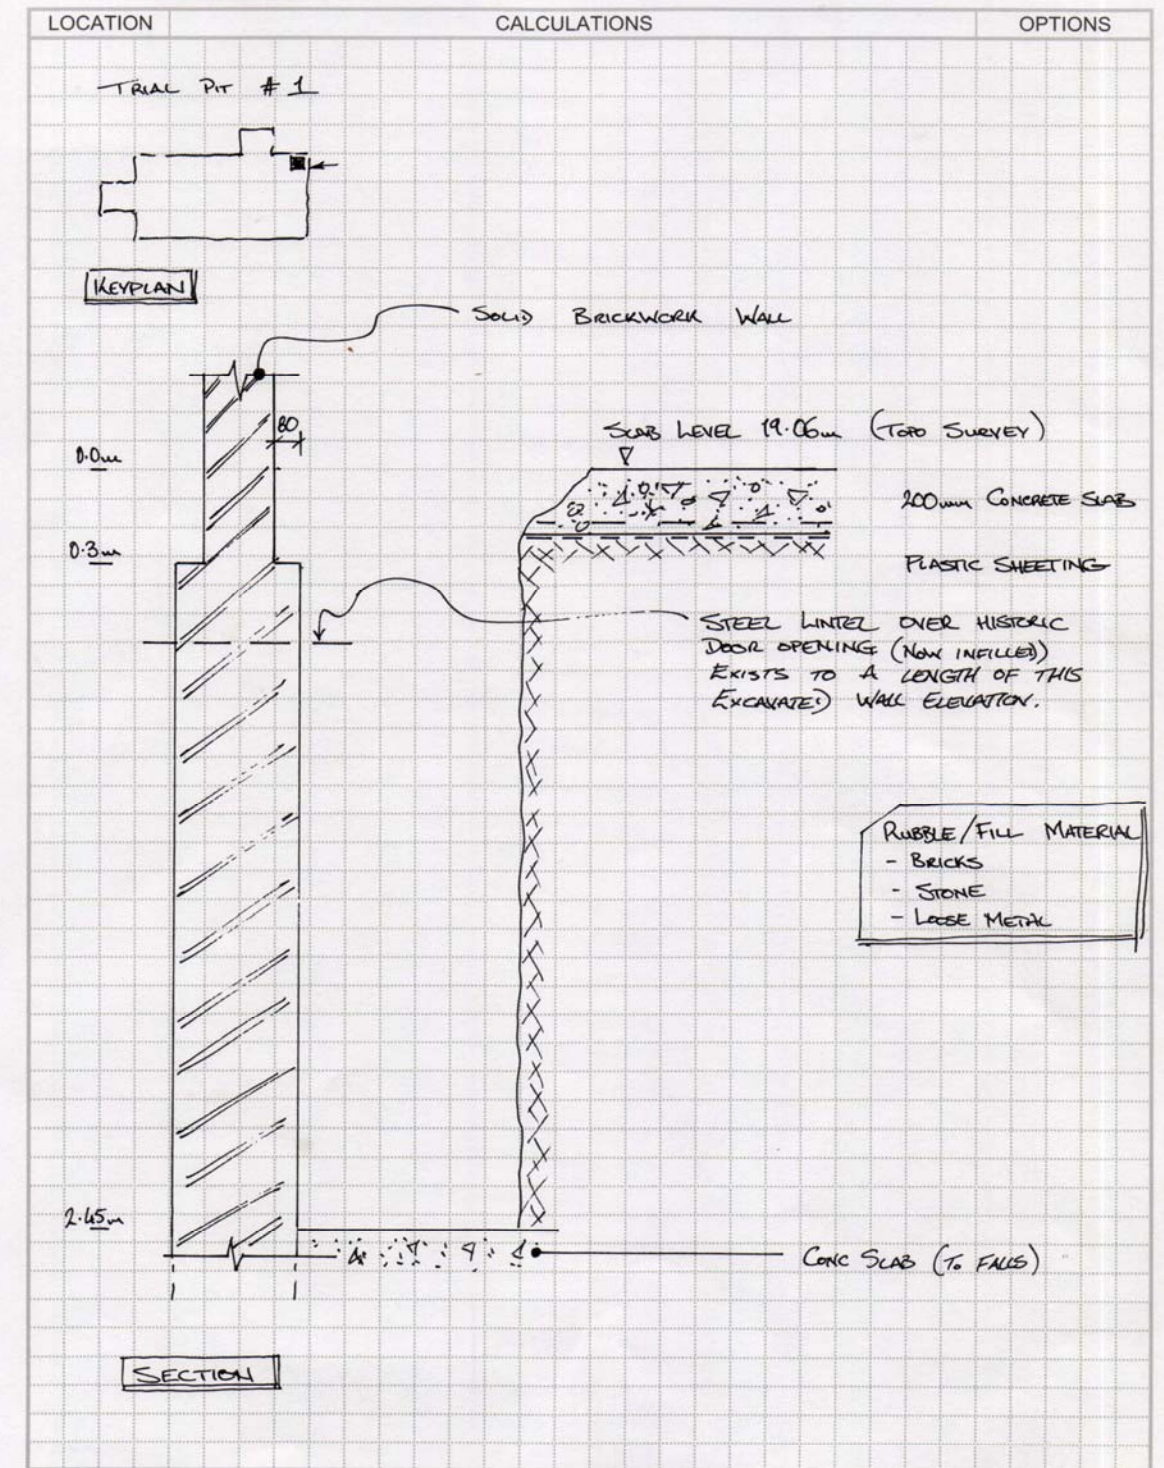 LOCATION
CALCULATIONS
OPTIONS
TRIAL PIT # 1
KEYPLAN
SOLID BRICKWORK WALL
80
SLAB LEVEL 19.06m (TOPO SURVEY)
0.0m
200mm CONCRETE SLAB
0.3m
PLASTIC SHEETING
STEEL LINTEL OVER HISTORIC
DOOR OPENING (NOW INFILLED)
EXISTS TO A LENGTH OF THIS
EXCAVATED WALL ELEVATION.
RUBBLE/FILL MATERIAL
- BRICKS
- STONE
- LOOSE METAL
2.45m
CONC SLAB (TO FALLS)
SECTION